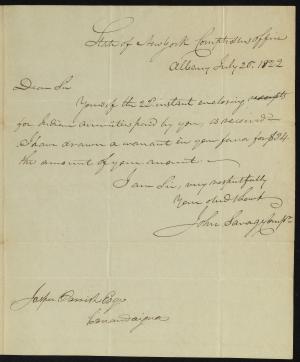 State of New York Comptrollers Office
Albany July 26. 1822
Dear Sir
Yours of the 22d instant enclosing receipts
for Indian annuities paid by you, is received
I have drawn a warrant in your favor for $34.
the amount of your account.
I am Sir, very respectfully
Your obed Servt
John Savage Compr.
Jasper Parrish Esqr
Canandaigua